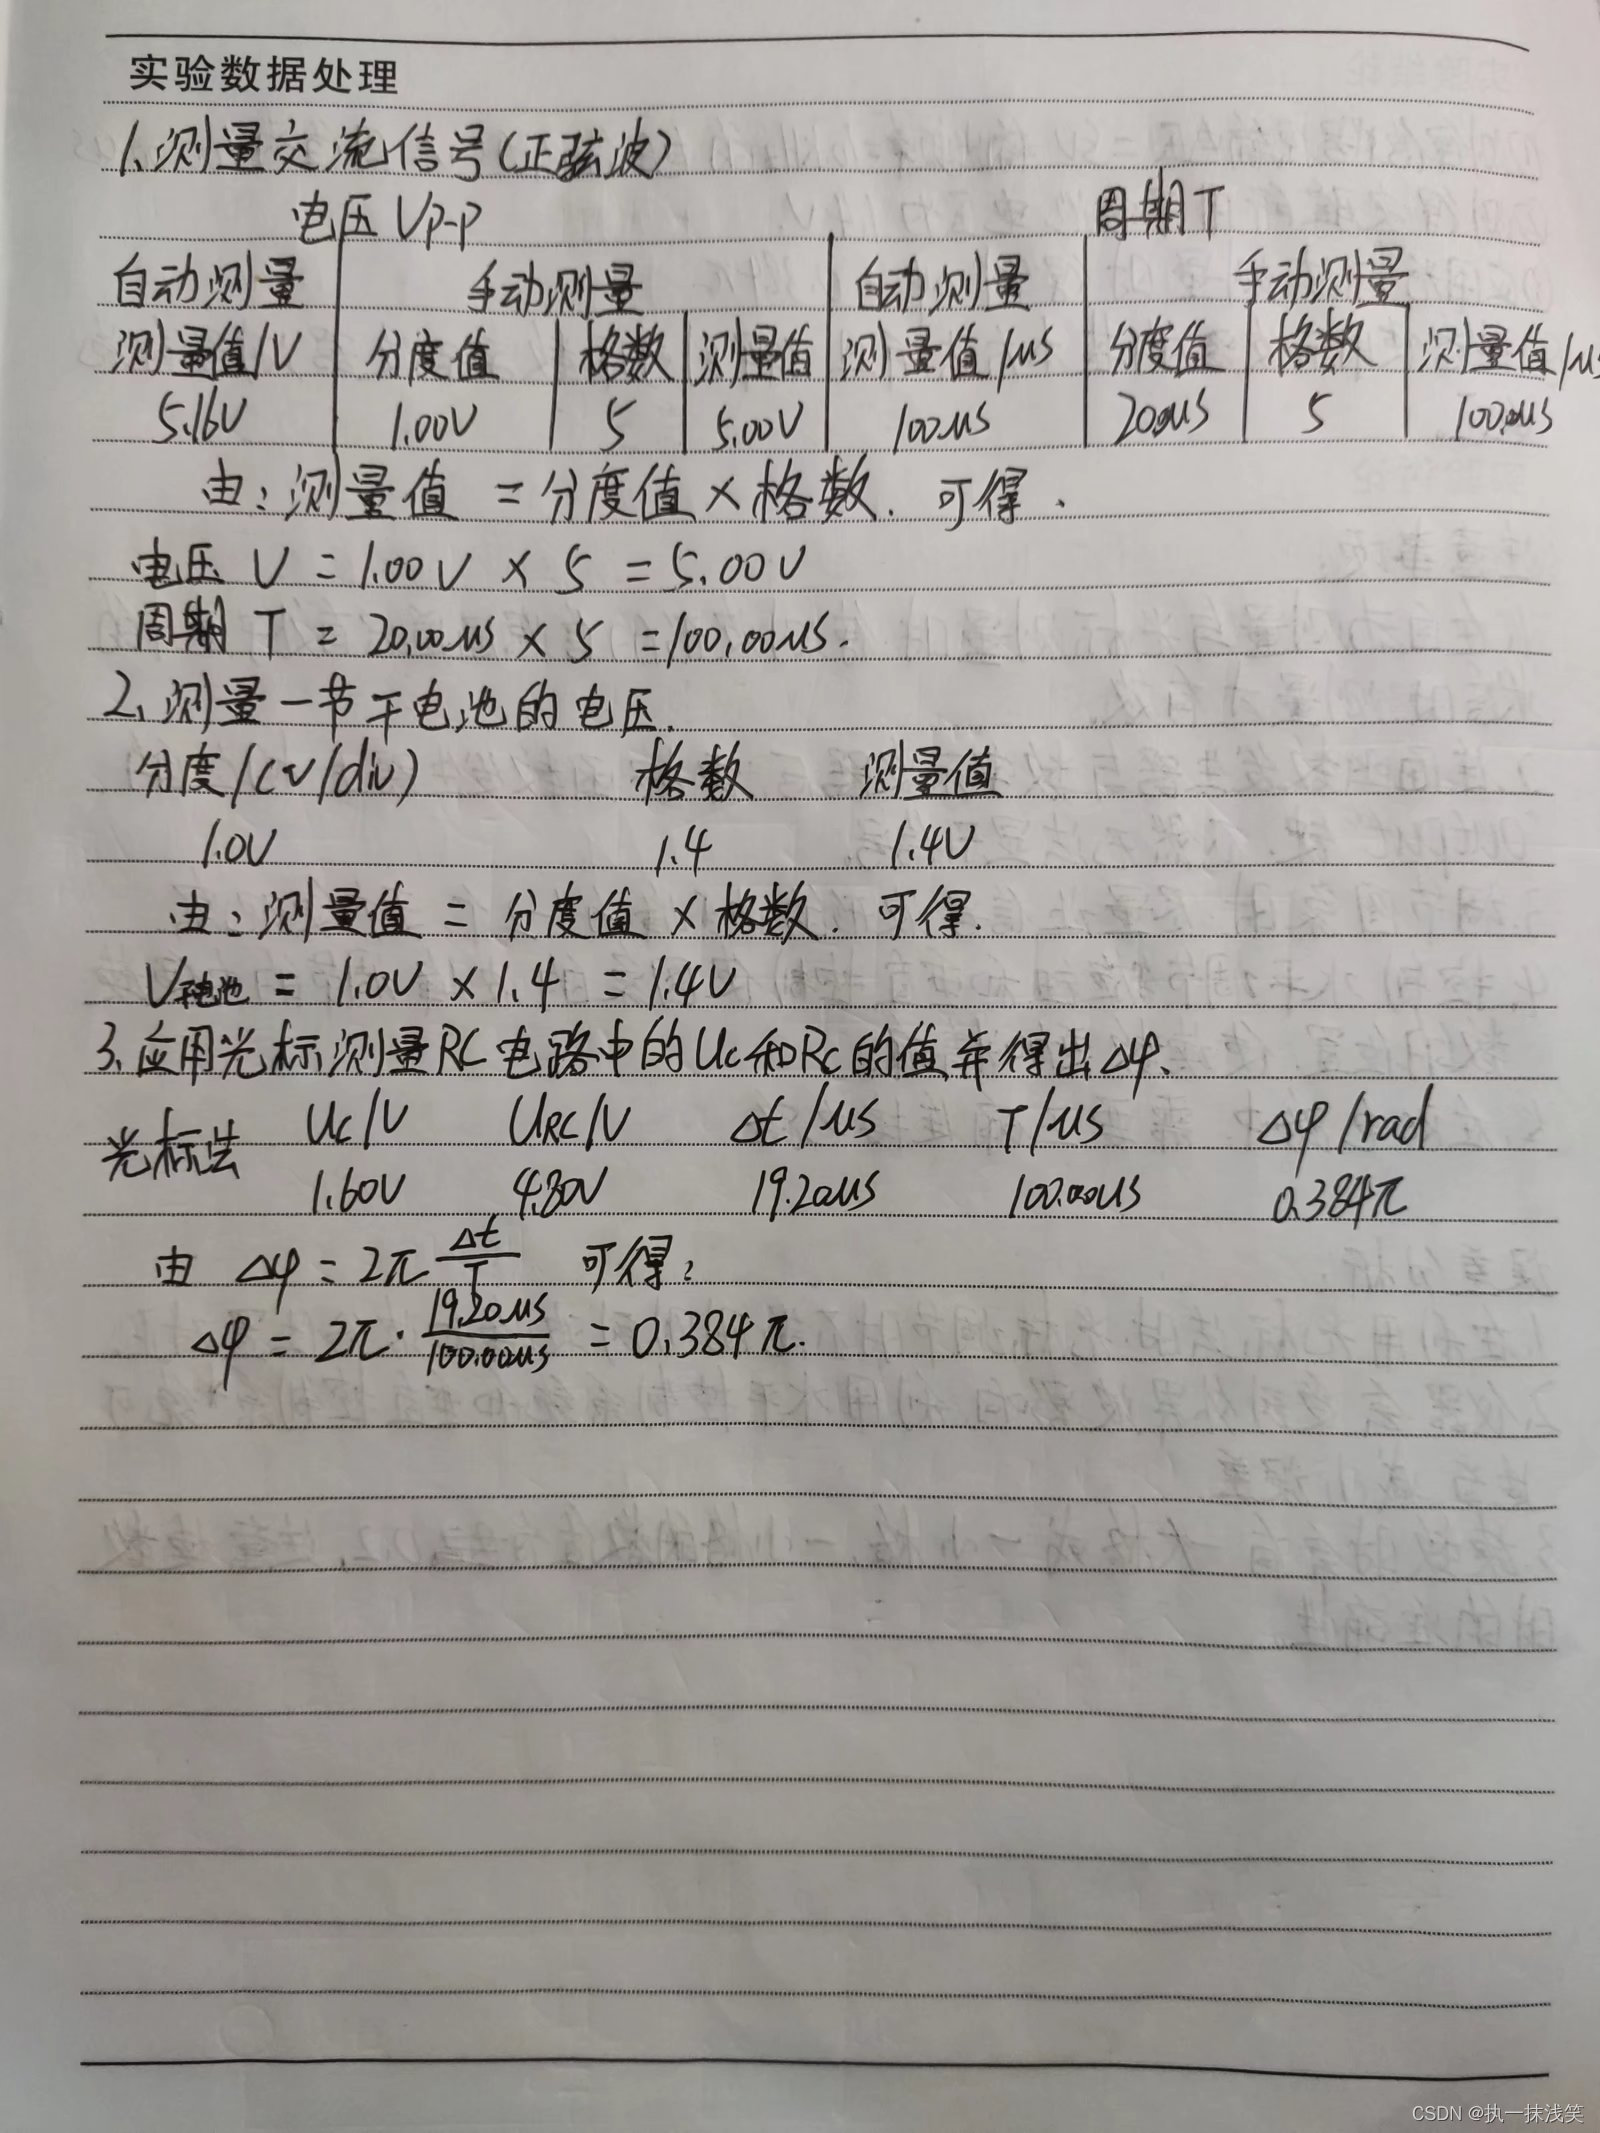 实验数据处理
1、测量交流信号(正弦波)
电压 Vp-p 周期T
自动测量 手动测量 自动测量 手动测量
测量值/V 分度值 格数 测量值 测量值/us 分度值 格数 测量值/us
5.16V 1.00V 5 5.00V 100us 20us 5 100.us
由：测量值 = 分度值 × 格数. 可得.
电压 V = 1.00V × 5 = 5.00V
周期 T = 20.00us × 5 = 100.00us.
2、测量一节干电池的电压.
分度/(v/div) 格数 测量值
1.0V 1.4 1.4V
由：测量值 = 分度值 × 格数. 可得.
V干电池 = 1.0V × 1.4 = 1.4V
3、应用光标测量RC电路中的Uc和Rc的值,并得出Δφ、
光标法 Uc/V URC/V Δt/us T/us Δφ/rad
1.60V 4.80V 19.20us 100.00us 0.384π
由 Δφ = 2π Δt/T 可得:
Δφ = 2π · 19.20us/100.00us = 0.384π.
CSDN @执一抹浅笑